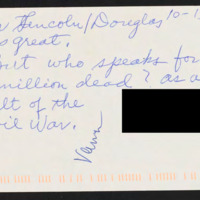 Lincoln/Douglas 10-1
s great.
t who speaks for
million dead? as a
lt of the
il War.